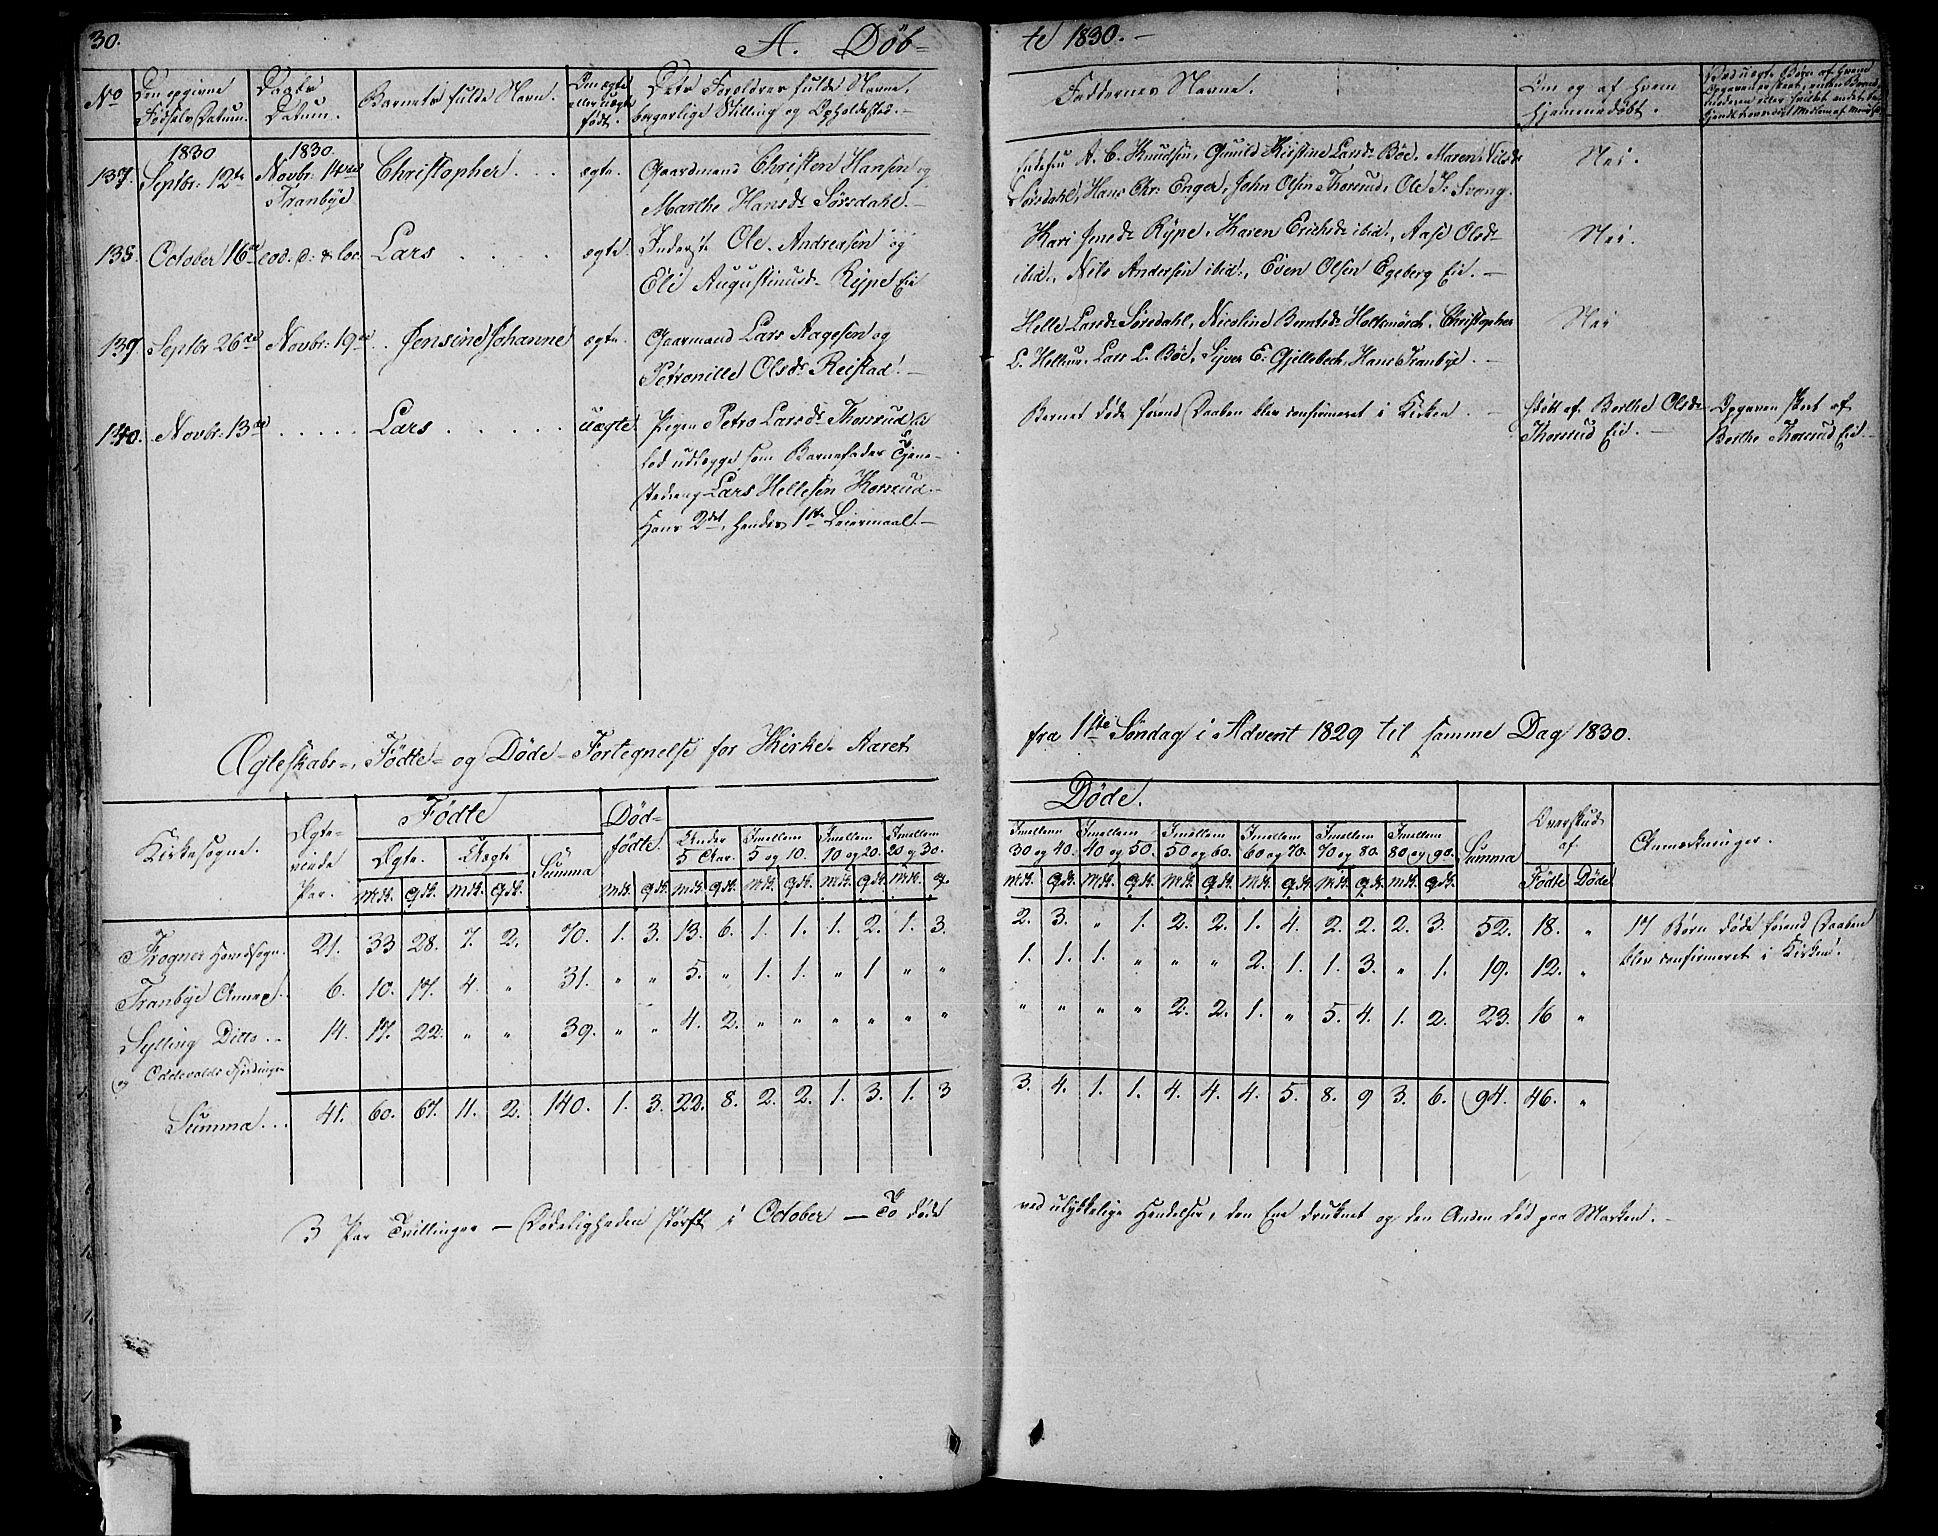 30. A. Døb=
No Den opgivne Fødsels Datum. Daabs Datum. Barnets fulde Navn. Om ægte eller uægte født. Dets Forældres fulde Navne, borgerlige Stilling og Opholdssted.
137. 1830 Septbr: 12te 1830. Novbr. 14de Tranbye Christopher. . . ægte. Gaardmand Christen Hansen og
Marthe Hansd: Sørsdahl.—
138. October 16de eod. d: & loc. Lars . . . . ægte. Inderst Ole Andreasen og
Eli Augustinusd: Rype Eie
139. Septbr 26de Novbr: 19de . . Jensine Johanne ægte. Gaarmand Lars Aagesen og
Petronille Olsd: Reistad.—
140. Novbr: 13de . . . . . Lars . . . . . uægte. Pigen Petro Larsd: Thorsrud ha
lod udlægge som Barnefader Tjene=
stedreng Lars Hellesen Korsrud.
Hans 2det, hendes 1ste Leiermaal.—
Ægteskabs=, Fødte= og Døde=Fortegnelse for Kirke=Aaret
Kirkesogne. Ægte=viede Par. Fødte Død=fødte.
Ægte. Uægte Summa Under 5 Aar. Imellem 5 og 10. Imellem 10 og 20. Imellem 20 og 30.
Mk. Qk. Mk. Qk. Mk. Qk. Mk. Qk. Mk. Qk. Mk. Qk. Mk. Q
Frogner Hovedsogn. 21. 33 28. 7. 2. 70. 1. 3. 13. 6. 1. 1. 1. 2. 1. 3.
Tranbye Annex. 6. 10. 17. 4. " 31. " " 5. " 1. 1. " 1 " "
Sylling Ditto . . 14. 17. 22. " " 39. " " 4. 2. " " " " " "
og Oddevalds Fjerdingen
Summa . . . 41. 60. 67. 11. 2. 140. 1. 3. 22. 8. 2. 2. 1. 3. 1. 3
3 Par Tvillinger — Dødeligheden størst i October — To døde
te 1830.—
Faddernes Navne. Om og af hvem hjemmedøbt.
Ved uægte Børn af hvem Opgaven er skeet, enten Barnemoderen eller
A. C. Knudsen, Gunild Kirstine Larsd: Bøe, Maren Nilsd: Nei.
Sørsdahl, Hans Chr: Enger, John Olsen Thorsrud, Ole J: Svang.
Kari Jensd: Rype, Karen Erichsd: ibid:, Aase Olsd: Nei.
ibid:, Nils Andersen ibid:, Even Olsen Egeberg Eie.—
Helle Larsd: Sørsdahl, Nicoline Berntsd: Holtsmarch, Christopher Nei
L. Hellum, Lars L. Bøe, Syver E. Gjellebech, Hans Tranbye.—
Barnet døde førend Daaben blev confirmeret i Kirken.— skett af Berthe Olsd: Opgaven skeet af
Thorsrud Eie.— Berthe Thorsrud Eie.—
fra 1ste Søndag i Advent 1829 til samme Dag 1830.
Døde.
Imellem 30 og 40. Imellem 40 og 50. Imellem 50 og 60. Imellem 60 og 70. Imellem 70 og 80. Imellem 80 og 90. Summa Overskud af Anmærkninger.
Mk. Qk. Mk. Qk. Mk. Qk. Mk. Qk. Mk. Qk. Mk. Qk. Fødte Døde
2. 3. " 1. 2. 2. 1. 4. 2. 2. 2. 3. 52. 18. " 17 Børn døde førend Daaben
blev confirmeret i Kirken.
1. 1. 1. " " " 2. 1. 1. 3. " 1. 19. 12. "
" " " " 2. 2. 1. " 5. 4. 1. 2. 23. 16 "
3. 4. 1. 1. 4. 4. 4. 5. 8. 9 3. 6. 94. 46. "
ved ulykkelige Hendelser, den Ene druknet og den Anden død paa Marken.—